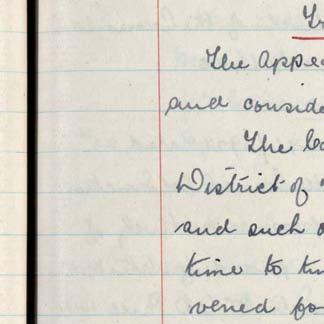 The Appe
and conside
The
District of
and such
time to
vened